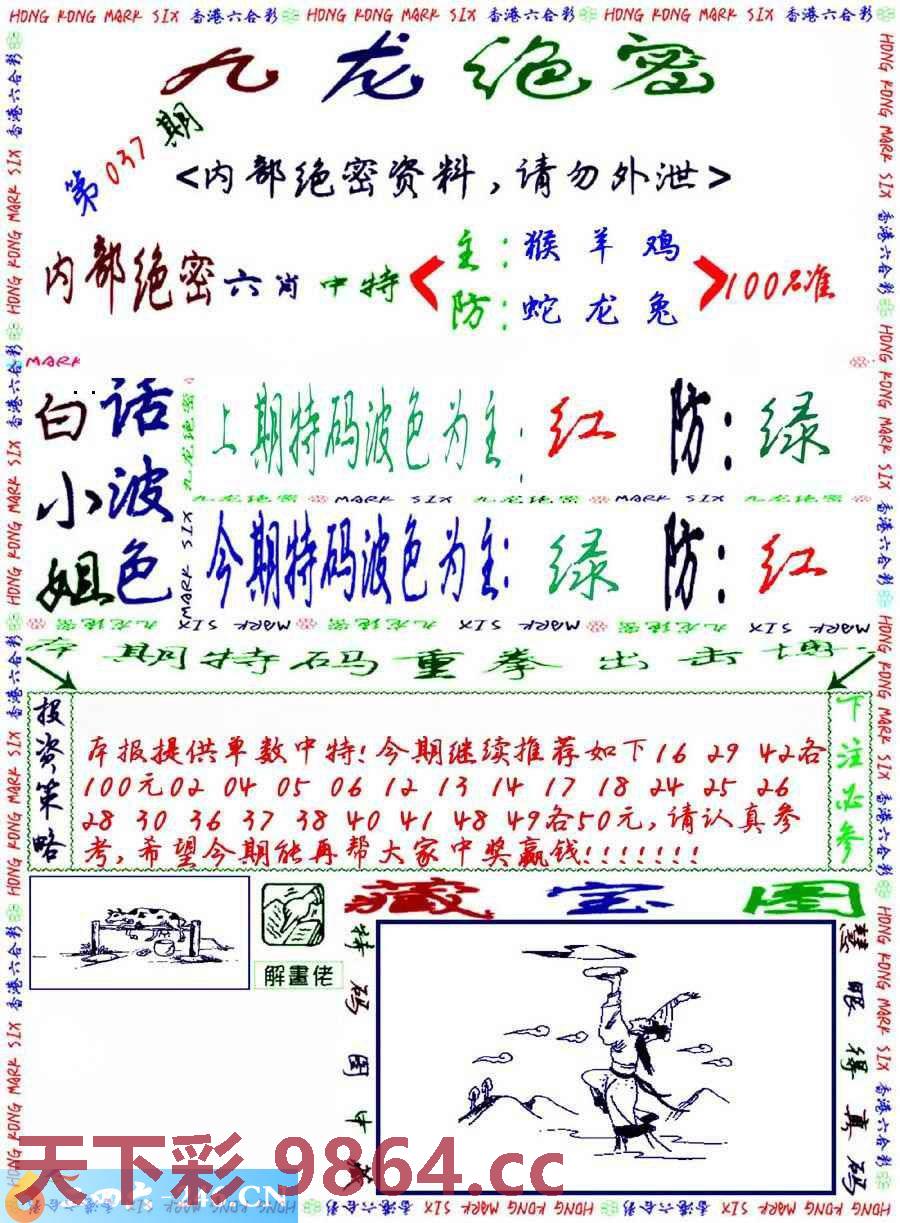 HONG KONG MARK SIX 香港六合彩 HONG KONG MARK SIX 香港六合彩 HONG KONG MARK SIX 香港六合彩
九龙绝密
第037期
<内部绝密资料,请勿外泄>
内部绝密六肖中特
主:猴羊鸡
防:蛇龙兔
100%准
MARK
白话小波姐色
上期特码波色为主:红 防:绿
九龙绝密 MARK SIX 九龙绝密 MARK SIX 九龙绝密
今期特码波色为主:绿 防:红
MARK SIX 九龙绝密 MARK SIX 九龙绝密 MARK SIX 九龙绝密 MARK SIX
本期特码重拳出击博
投资策略
本报提供单数中特!今期继续推荐如下16 29 42各
100元02 04 05 06 12 13 14 17 18 24 25 26
28 30 36 37 38 40 41 48 49各50元,请认真参
考,希望今期能再帮大家中奖赢钱!!!!!!!
下注必参
藏宝图
解畫佬
特码图中藏
慧眼得真码
天下彩.9864.cc
.CN
HONG KONG MARK SIX 香港六合彩